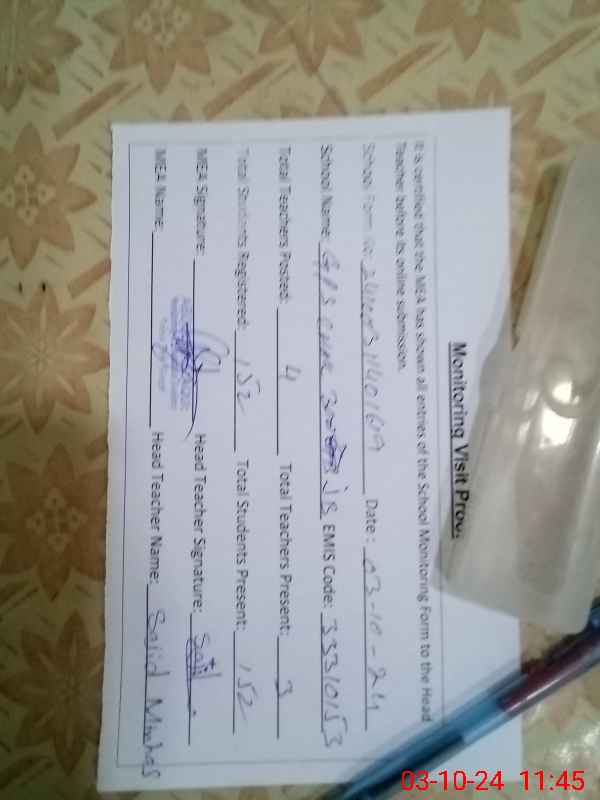 Monitoring Visit
It is certified that the MEA has shown all entries of the School Monitoring Form to the Head
Teacher before its online submission.
School Form No: Date: 03-10-24
School Name: GPS Chak JB EMIS Code: 33310153
Total Teachers Posted: 4 Total Teachers Present: 3
Total Students Registered: 152 Total Students Present: 152
MEA Signature: Head Teacher Signature: Sajid
MEA Name: Head Teacher Name: Sajid Minhas
03-10-24 11:45